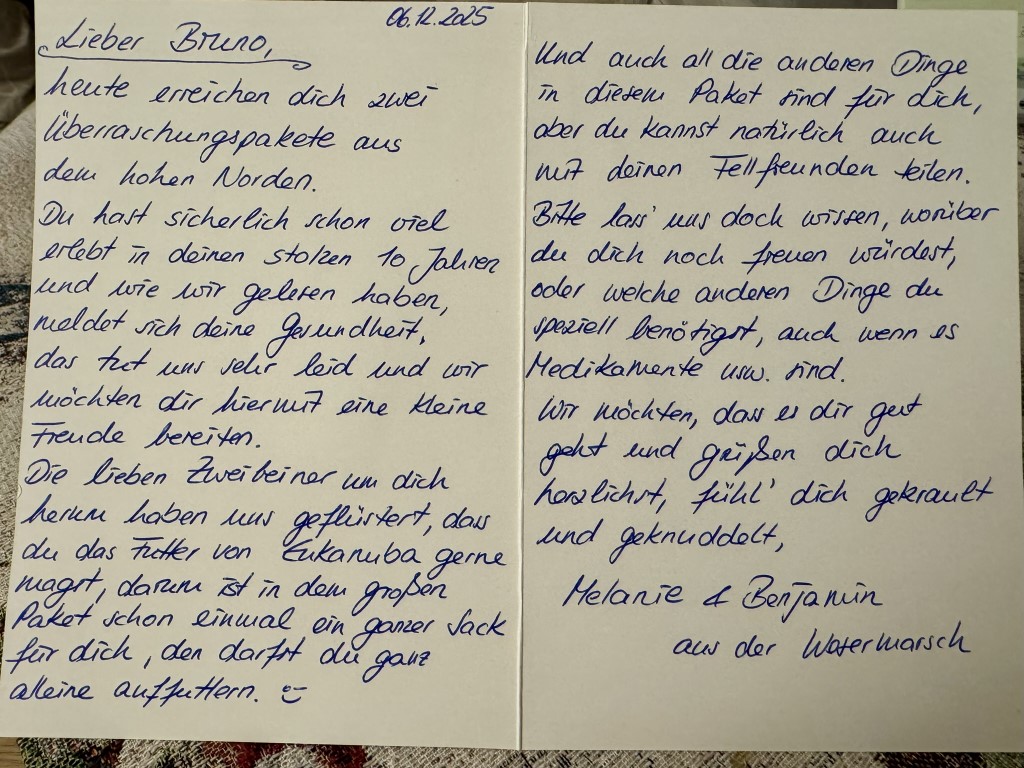 06.12.2025
Lieber Bruno,
heute erreichen dich zwei
Überraschungspakete aus
dem hohen Norden.
Du hast sicherlich schon viel
erlebt in deinen stolzen 10 Jahren
und wie wir gelesen haben,
meldet sich deine Gesundheit,
das tut uns sehr leid und wir
möchten dir hiermit eine kleine
Freude bereiten.
Die lieben Zweibeiner um dich
herum haben uns geflüstert, dass
du das Futter von Eukanuba gerne
magst, darum ist in dem großen
Paket schon einmal ein ganzer Sack
für dich, den darfst du ganz
alleine auffuttern.
Und auch all die anderen Dinge
in diesem Paket sind für dich,
aber du kannst natürlich auch
mit deinen Fellfreunden teilen.
Bitte lass' uns doch wissen, worüber
du dich noch freuen würdest,
oder welche anderen Dinge du
speziell benötigst, auch wenn es
Medikamente usw. sind.
Wir möchten, dass es dir gut
geht und grüßen dich
herzlichst, fühl' dich gekrault
und geknuddelt,
Melanie & Benjamin
aus der Wesermarsch